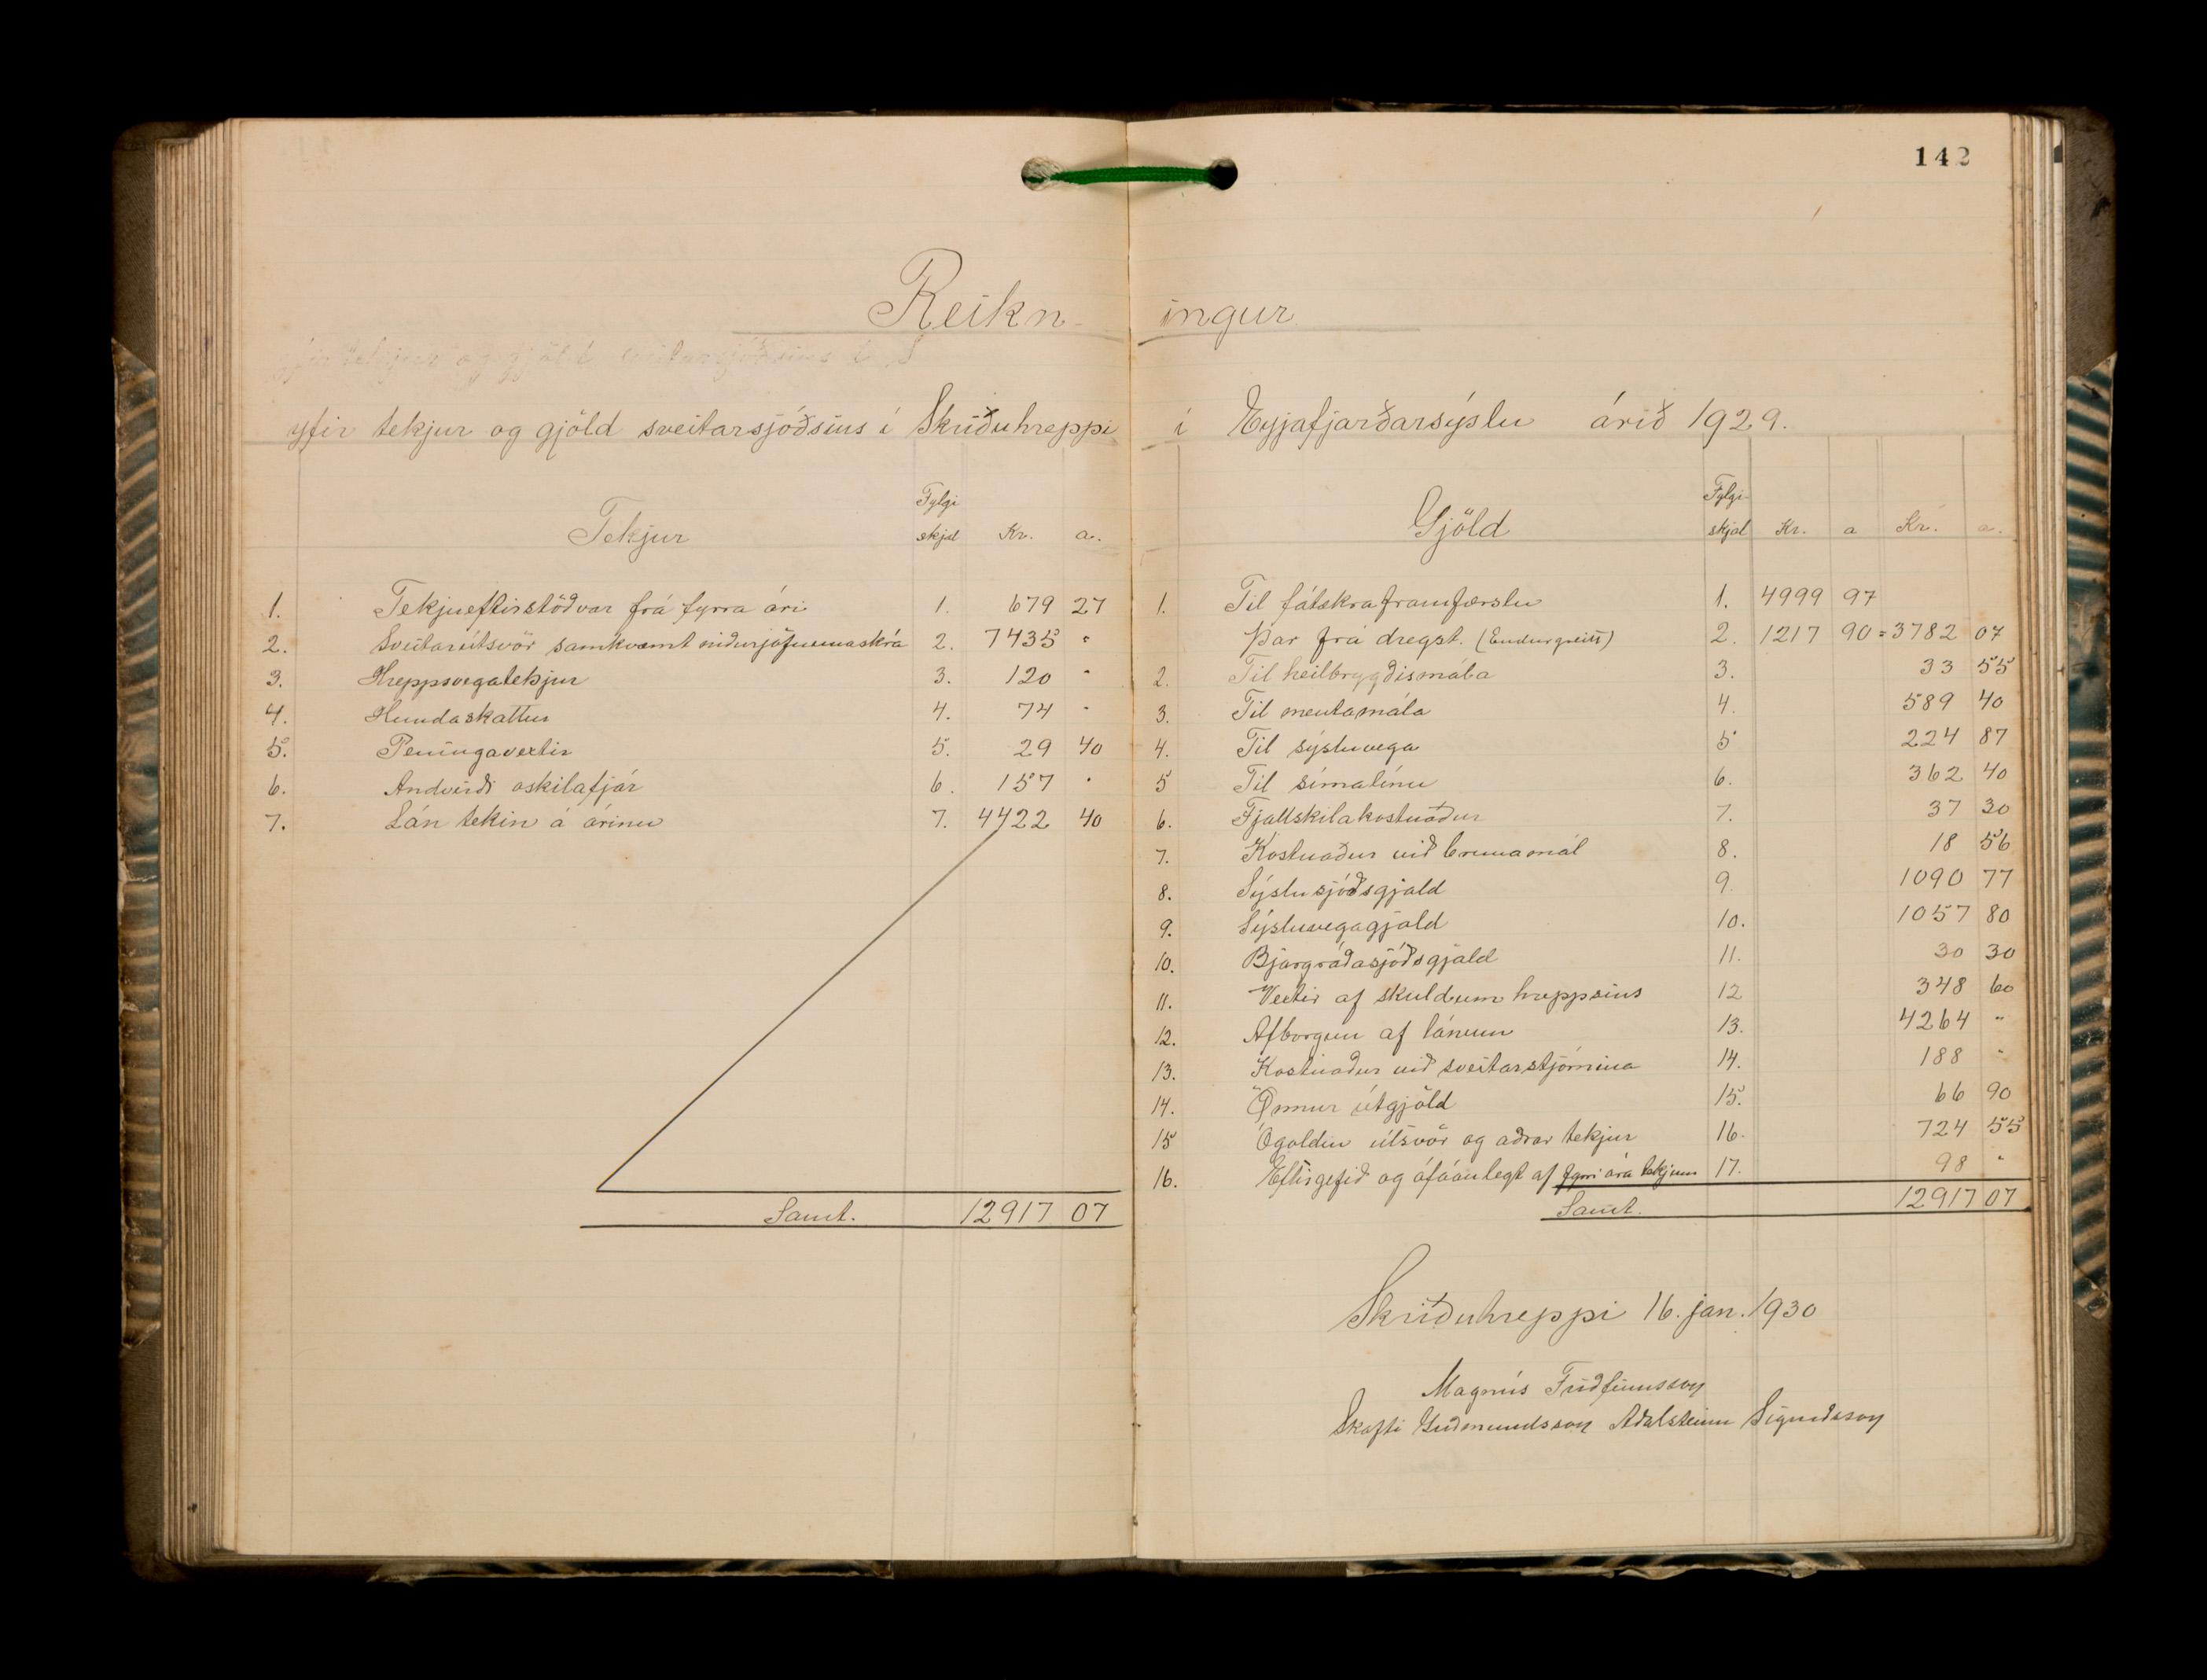 142
Reikn- ingur
yfir tekjur og gjöld sveitarsjóðsins í Skriðuhreppi í Eyjafjarðarsýslu árið 1929.
Tekjur Fylgi skjal Kr. a.
1. Tekjueftirstöðvar frá fyrra ári 1. 679 27
2. Sveitarútsvör samkvæmt niðurjöfnunaskrá 2. 7435 "
3. Hreppsvegatekjur 3. 120 "
4. Hundaskattur 4. 74 "
5. Peningavextir 5. 29 40
6. Andvirði óskilafjár 6. 157 "
7. Lán tekin á árinu 7. 4422 40
Samt. 12917 07
Gjöld Fylgi- skjal Kr. a Kr. a.
1. Til fátækraframfærslu 1. 4999 97
Þar frá dregst. (Endurgreitt) 2. 1217 90 = 3782 07
2. Til heilbrygðismála 3. 33 55
3. Til mentamála 4. 589 40
4. Til sýsluvega 5 224 87
5 Til símalínu 6. 362 40
6. Fjallskilakostnaður 7. 37 30
7. Kostnaður við brunamál 8. 18 56
8. Sýslusjóðsgjald 9. 1090 77
9. Sýsluvegagjald 10. 1057 80
10. Bjargráðasjóðsgjald 11. 30 30
11. Vextir af skuldum hreppsins 12 348 60
12. Afborgun af lánum 13. 4264 "
13. Kostnaður við sveitarstjórnina 14. 188 "
14. Önnur útgjöld 15. 66 90
15 Ógoldin útsvör og aðrar tekjur 16. 724 55
16. Eftirgefið og ófáanlegt af fyrri ára tekjum 17. 98 "
Samt. 12917 07
Skriðuhreppi 16. jan. 1930
Magnús Friðfinnsson
Skafti Guðmundsson Aðalsteinn Sigurðsson